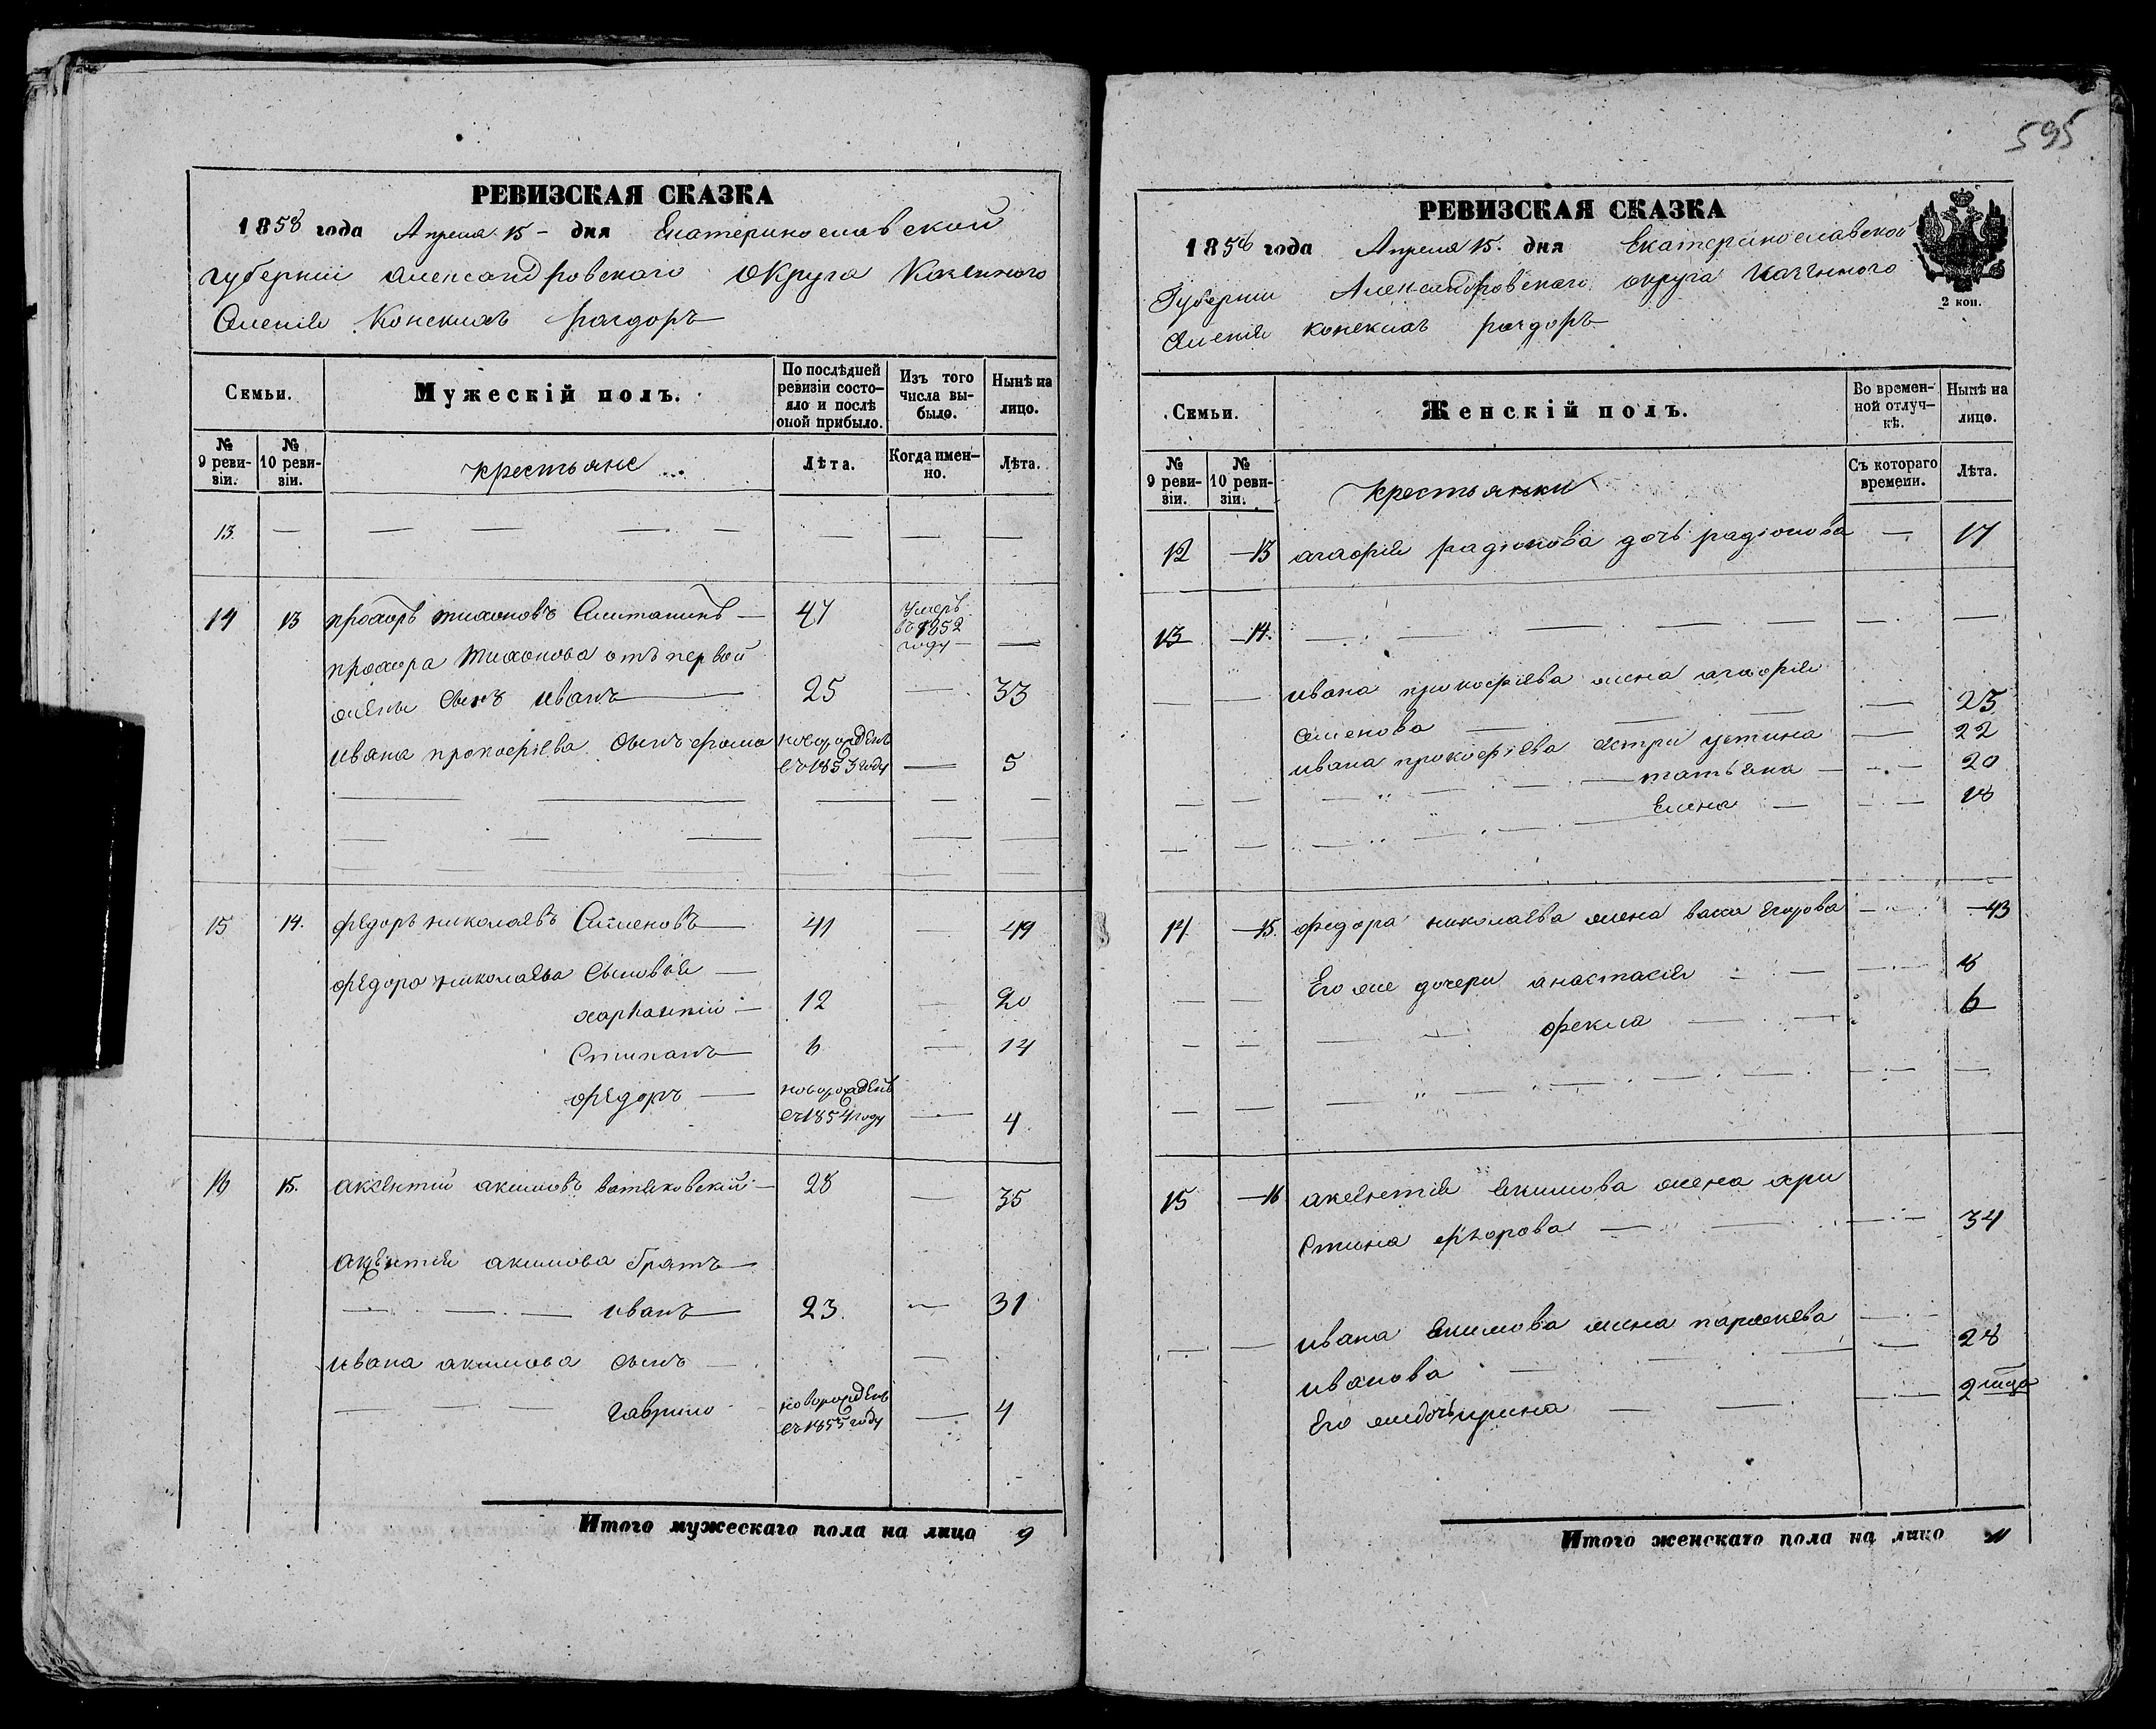 595
РЕВИЗСКАЯ СКАЗКА
1858 года Апреля 15 – дня Екатеринославской
губернии александровскаго округа Казеннаго
Селенія Конскихъ раздоръ
Семьи.
Мужескій полъ.
По послѣдней ревизіи состояло и послѣ оной прибыло.
Изъ того числа выбыло.
Нынѣ на лицо.
№ 9 ревизіи.
№ 10 ревизіи.
крестьяне
Лѣта.
Когда именно.
Лѣта.
13. — — — — — —
14 13 прохоръ тихоновъ — 47 умеръ въ 1852 году —
прохора тихонова отъ первой
жены сынъ иванъ — 25 — 33
ивана прокофіева сынъ фома новорожденъ съ 1853 году — 5
15 14. федоръ николаевъ Сѣменовъ — 41 — 49
федора николаева сыновья —
12 — 20
Степанъ — 6 — 14
федоръ — новорожденъ съ 1854 году — 4
16 15. аксентий акимовъ — 28 — 35
аксентия акимова братъ —
— иванъ — 23. — 31
ивана акимова сынъ — —
гаврило новорожденъ съ 1855 году — 4
Итого мужескаго пола на лицо 9
РЕВИЗСКАЯ СКАЗКА
1858 года Апреля 15. дня Екатеринославской
Губернии Александровскаго округа Казеннаго
Селенія конскихъ раздоръ
2 коп.
Семьи.
Женскій полъ.
Во временной отлучкѣ.
Нынѣ на лицо.
№ 9 ревизіи.
№ 10 ревизіи.
крестьянки
Съ котораго времени.
Лѣта.
12 – 13 агафія радіонова дочь радіонова — 17
13 – 14. — — — — —
ивана прокофіева жена агафія
Сѣменова — 25
ивана прокофіева сестри устина — 22
— татьяна — 20
Елена — 18
14 – 15. федора николаева жена васса Егорова — 43
Его же дочери анастасія — 8
— фекла — 6
15 – 16 аксентія Екимова жена хри
стина — 34
ивана Екимова жена парасkева
иванова — 28
Его же дочь ирина — 2 года
Итого женскаго пола на лицо 11